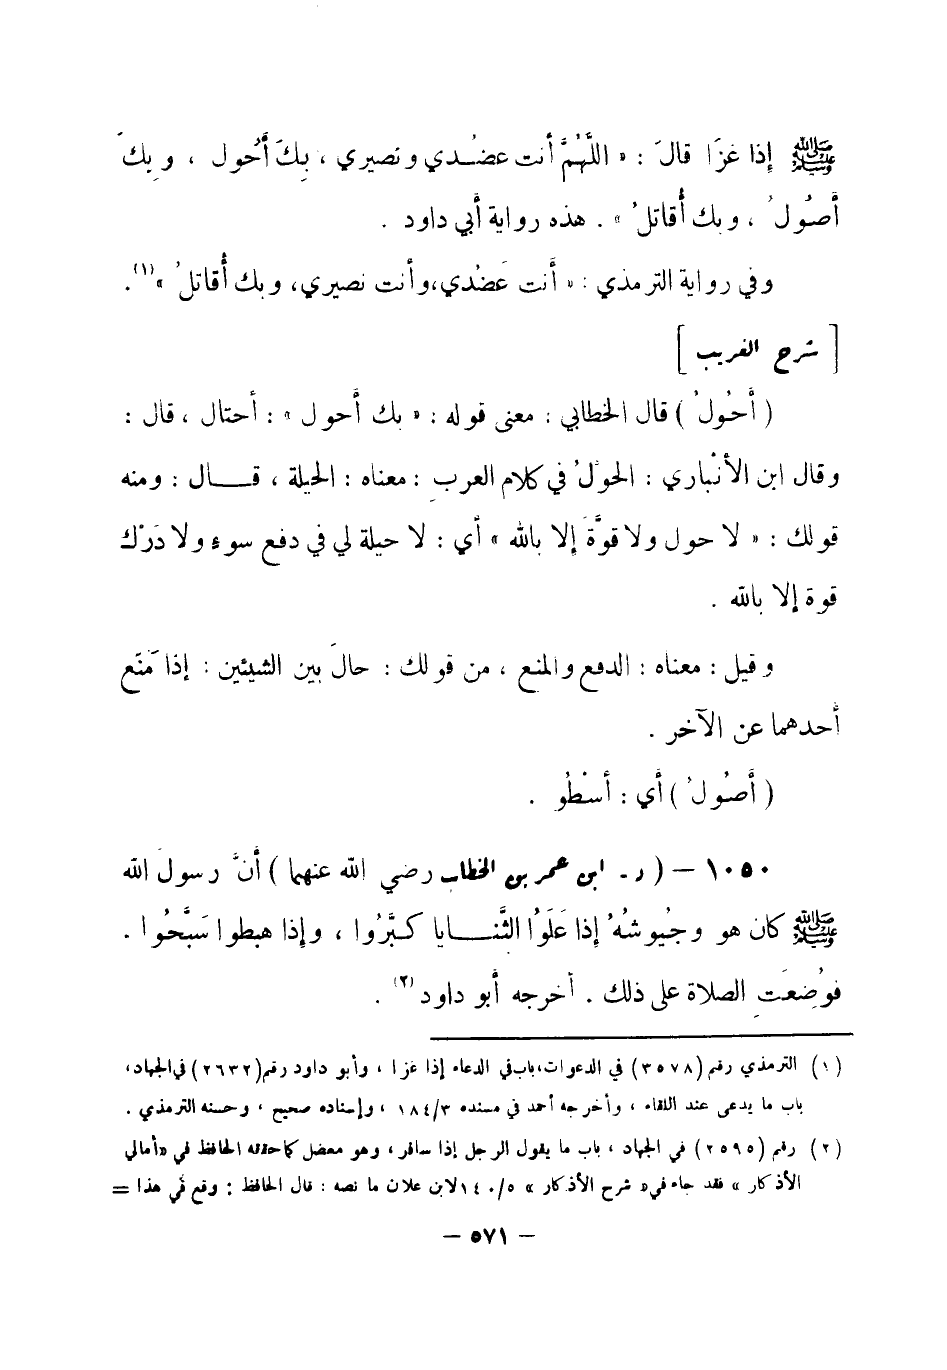 ﷺ إِذا غَزَا قالَ : « اللَّهُمَّ أنت عضُدي ونصيري ، بِكَ أَحُول ، وبِكَ
أَصُولُ ، وبك أُقاتلُ » . هذه رواية أبي داود .
وفي رواية الترمذي : « أَنت عَضُدي،وأنت نصيري، وبك أُقاتلُ »(١).
[ شرح الغريب ]
( أَحُولُ ) قال الخطابي : معنى قوله : « بك أَحول » : أحتال ، قال :
وقال ابن الأنْباري : الحوْلُ في كلام العربِ : معناه : الحيلة ، قـــال : ومنه
قولك : « لا حول ولا قوَّةَ إلا بالله » أي : لا حيلة لي في دفع سوءٍ ولا دَرْك
قوة إلا بالله .
وقيل : معناه : الدفع والمنع ، من قولك : حالَ بين الشيئين : إذا مَنَع
أحدهما عن الآخر .
( أَصُولُ ) أَي : أسْطُو .
١٠٥٠ – ( د - ابن عمر بن الخطاب رضي الله عنهما ) أَنَّ رسولَ الله
ﷺ كان هو وجُيوشُهُ إذا عَلَوُا الثَّنــايا كبَّرُوا ، وإذا هبطوا سَبَّحُوا .
فوُضِعَتِ الصلاة على ذلك . أخرجه أبو داود(٢) .
(١) الترمذي رقم (٣٥٧٨) في الدعوات،باب في الدعاء إذا غزا ، وأبو داود رقم(٢٦٣٢) في الجهاد،
باب ما يدعى عند اللقاء ، وأخرجه أحمد في مسنده ١٨٤/٣ ، وإسناده صحيح ، وحسنه الترمذي .
(٢) رقم (٢٥٩٥) في الجهاد ، باب ما يقول الرجل إذا سافر ، وهو معضل كما حققه الحافظ في «أمالي
الأذكار » فقد جاء في« شرح الأذكار » ١٤٠/٥ لابن علان ما نصه : قال الحافظ : وقع في هذا =
– ٥٧١ –